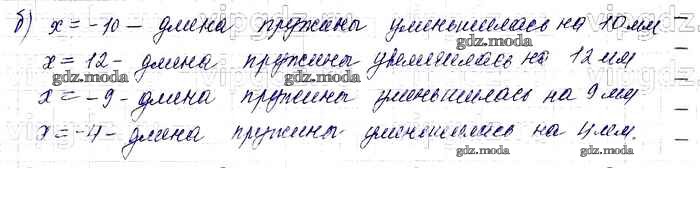 б) x = -10 - длина пружины уменьшилась на 10 мм
x = 12 - длина пружины увеличилась на 12 мм
x = -9 - длина пружины уменьшилась на 9 мм
x = -4 - длина пружины уменьшилась на 4 мм.
gdz.moda gdz.moda gdz.moda
gdz.moda gdz.moda gdz.moda
gdz.moda gdz.moda